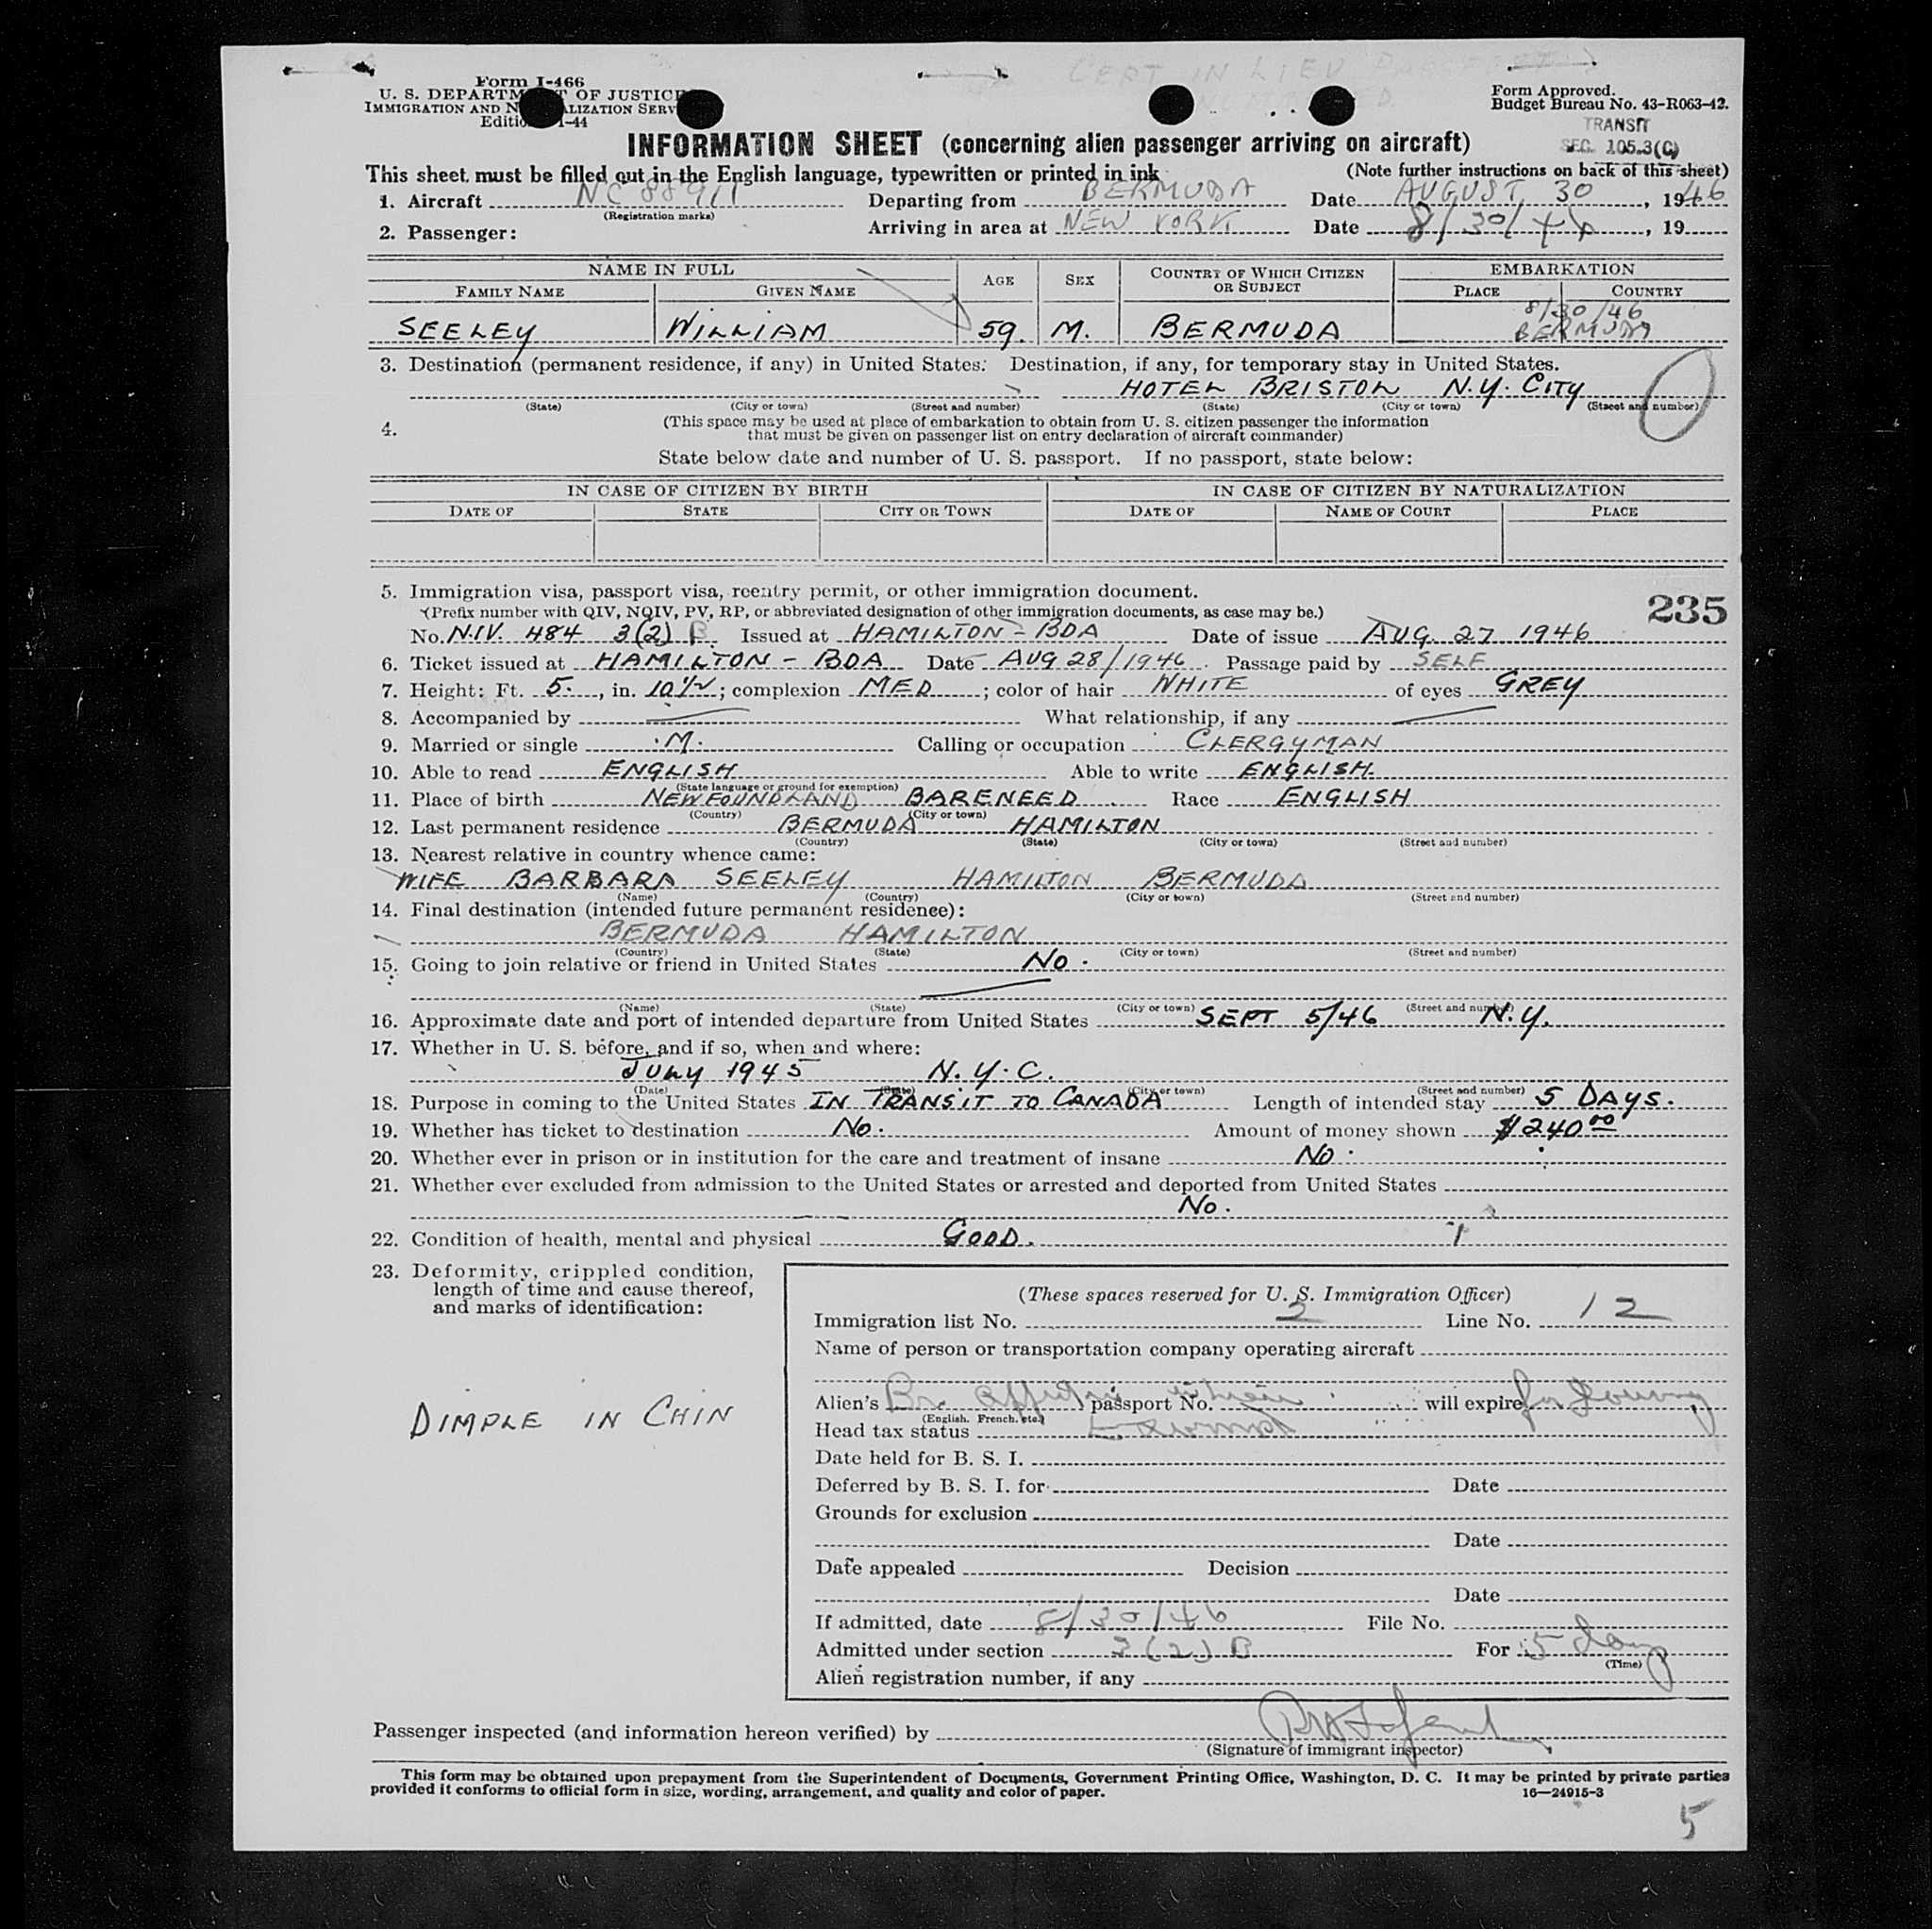 CERT IN LIEU
Form I-466
U. S. DEPARTMENT OF JUSTICE
IMMIGRATION AND NATURALIZATION SERV
Edition 1-44
Form Approved.
Budget Bureau No. 43-R063-42.
TRANSIT
SEC. 105.3(C)
INFORMATION SHEET (concerning alien passenger arriving on aircraft)
This sheet must be filled out in the English language, typewritten or printed in ink (Note further instructions on back of this sheet)
1. Aircraft NC 88911 Departing from BERMUDA Date AUGUST 30, 1946
(Registration marks)
2. Passenger: Arriving in area at NEW YORK Date 8/30/44, 19
NAME IN FULL AGE SEX COUNTRY OF WHICH CITIZEN OR SUBJECT EMBARKATION
FAMILY NAME GIVEN NAME PLACE COUNTRY
8/30/46
SEELEY WILLIAM 59. M. BERMUDA BERMUDA
3. Destination (permanent residence, if any) in United States: Destination, if any, for temporary stay in United States.
HOTEL BRISTOL N.Y. CITY
(State) (City or town) (Street and number) (State) (City or town) (Street and number)
4. (This space may be used at place of embarkation to obtain from U. S. citizen passenger the information
that must be given on passenger list on entry declaration of aircraft commander)
State below date and number of U. S. passport. If no passport, state below:
IN CASE OF CITIZEN BY BIRTH IN CASE OF CITIZEN BY NATURALIZATION
DATE OF STATE CITY OR TOWN DATE OF NAME OF COURT PLACE
5. Immigration visa, passport visa, reentry permit, or other immigration document.
(Prefix number with QIV, NQIV, PV, RP, or abbreviated designation of other immigration documents, as case may be.)
235
No. N.I.V. 484 3(2) B Issued at HAMILTON - BDA Date of issue AUG. 27 1946
6. Ticket issued at HAMILTON - BDA Date AUG 28/1946. Passage paid by SELF
7. Height: Ft. 5., in. 10 1/2; complexion MED; color of hair WHITE of eyes GREY
8. Accompanied by What relationship, if any
9. Married or single M. Calling or occupation CLERGYMAN
10. Able to read ENGLISH Able to write ENGLISH.
(State language or ground for exemption)
11. Place of birth NEWFOUNDLAND BARENEED Race ENGLISH
(Country) (City or town)
12. Last permanent residence BERMUDA HAMILTON
(Country) (State) (City or town) (Street and number)
13. Nearest relative in country whence came:
WIFE BARBARA SEELEY HAMILTON BERMUDA
(Name) (Country) (City or town) (Street and number)
14. Final destination (intended future permanent residence):
BERMUDA HAMILTON
(Country) (State) (City or town) (Street and number)
15. Going to join relative or friend in United States No.
(Name) (State) (City or town) (Street and number)
16. Approximate date and port of intended departure from United States SEPT 5/46 N.Y.
17. Whether in U. S. before, and if so, when and where:
JULY 1945 N.Y.C.
(Date) (State) (City or town) (Street and number)
18. Purpose in coming to the United States IN TRANSIT TO CANADA Length of intended stay 5 DAYS.
19. Whether has ticket to destination No. Amount of money shown $240 00
20. Whether ever in prison or in institution for the care and treatment of insane No.
21. Whether ever excluded from admission to the United States or arrested and deported from United States
No.
22. Condition of health, mental and physical GOOD.
23. Deformity, crippled condition,
length of time and cause thereof,
and marks of identification:
DIMPLE IN CHIN
(These spaces reserved for U. S. Immigration Officer)
Immigration list No. 2 Line No. 12
Name of person or transportation company operating aircraft
Alien's Br. passport No. will expire
(English. French. etc.)
Head tax status
Date held for B. S. I.
Deferred by B. S. I. for Date
Grounds for exclusion
Date
Date appealed Decision
Date
If admitted, date 8/30/46 File No.
Admitted under section 3(2) B For 5 days
(Time)
Alien registration number, if any
Passenger inspected (and information hereon verified) by
(Signature of immigrant inspector)
This form may be obtained upon prepayment from the Superintendent of Documents, Government Printing Office, Washington, D. C. It may be printed by private parties
provided it conforms to official form in size, wording, arrangement, and quality and color of paper. 16—24915-3
5